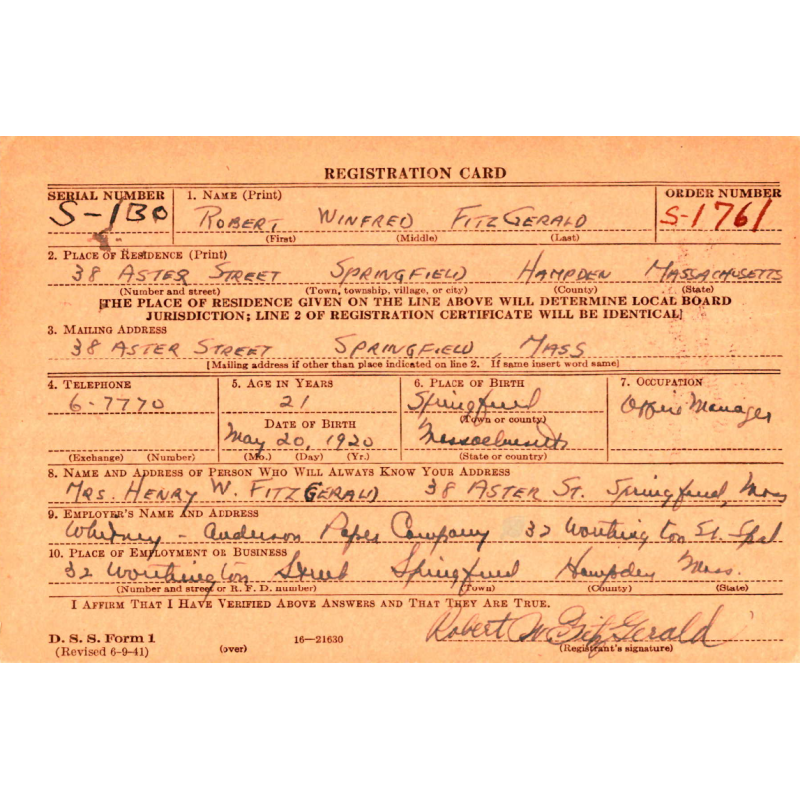 REGISTRATION CARD
SERIAL NUMBER 1. NAME (Print) ORDER NUMBER
S-130 ROBERT WINFRED FITZGERALD S-1761
(First) (Middle) (Last)
2. PLACE OF RESIDENCE (Print)
38 ASTER STREET SPRINGFIELD HAMPDEN MASSACHUSETTS
(Number and street) (Town, township, village, or city) (County) (State)
[THE PLACE OF RESIDENCE GIVEN ON THE LINE ABOVE WILL DETERMINE LOCAL BOARD
JURISDICTION; LINE 2 OF REGISTRATION CERTIFICATE WILL BE IDENTICAL]
3. MAILING ADDRESS
38 ASTER STREET SPRINGFIELD, MASS
[Mailing address if other than place indicated on line 2. If same insert word same]
4. TELEPHONE 5. AGE IN YEARS 6. PLACE OF BIRTH 7. OCCUPATION
6-7770 21 Springfield Office Manager
(Town or county)
DATE OF BIRTH
May 20, 1920 Massachusetts
(Exchange) (Number) (Mo.) (Day) (Yr.) (State or country)
8. NAME AND ADDRESS OF PERSON WHO WILL ALWAYS KNOW YOUR ADDRESS
MRS. HENRY W. FITZGERALD 38 ASTER ST. Springfield, Mass
9. EMPLOYER'S NAME AND ADDRESS
Whitney - Anderson Paper Company 32 Worthington St. Spfd
10. PLACE OF EMPLOYMENT OR BUSINESS
32 Worthington Street Springfield Hampden Mass.
(Number and street or R. F. D. number) (Town) (County) (State)
I AFFIRM THAT I HAVE VERIFIED ABOVE ANSWERS AND THAT THEY ARE TRUE.
Robert W FitzGerald
D. S. S. Form 1 16—21630
(Revised 6-9-41) (over) (Registrant's signature)